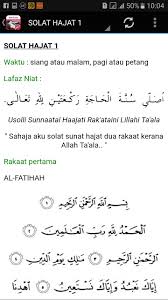 10:04
SOLAT HAJAT 1
SOLAT HAJAT 1
Waktu : siang atau malam, pagi atau petang
Lafaz Niat :
اُصَلِّي سُنَّةَ الْحَاجَةِ رَكْعَتَيْنِ لِلّٰهِ تَعَالَى.
Usolli Sunnaatal Haajati Rak'ataini Lillahi Ta'ala
" Sahaja aku solat sunat hajat dua rakaat kerana
Allah Ta'ala.. "
Rakaat pertama
AL-FATIHAH
بِسْمِ اللَّهِ الرَّحْمَٰنِ الرَّحِيمِ ﴿١﴾
الْحَمْدُ لِلَّهِ رَبِّ الْعَالَمِينَ ﴿٢﴾
الرَّحْمَٰنِ الرَّحِيمِ ﴿٣﴾ مَالِكِ يَوْمِ الدِّينِ ﴿٤﴾
إِيَّاكَ نَعْبُدُ وَإِيَّاكَ نَسْتَعِينُ ﴿٥﴾ اهْدِنَا